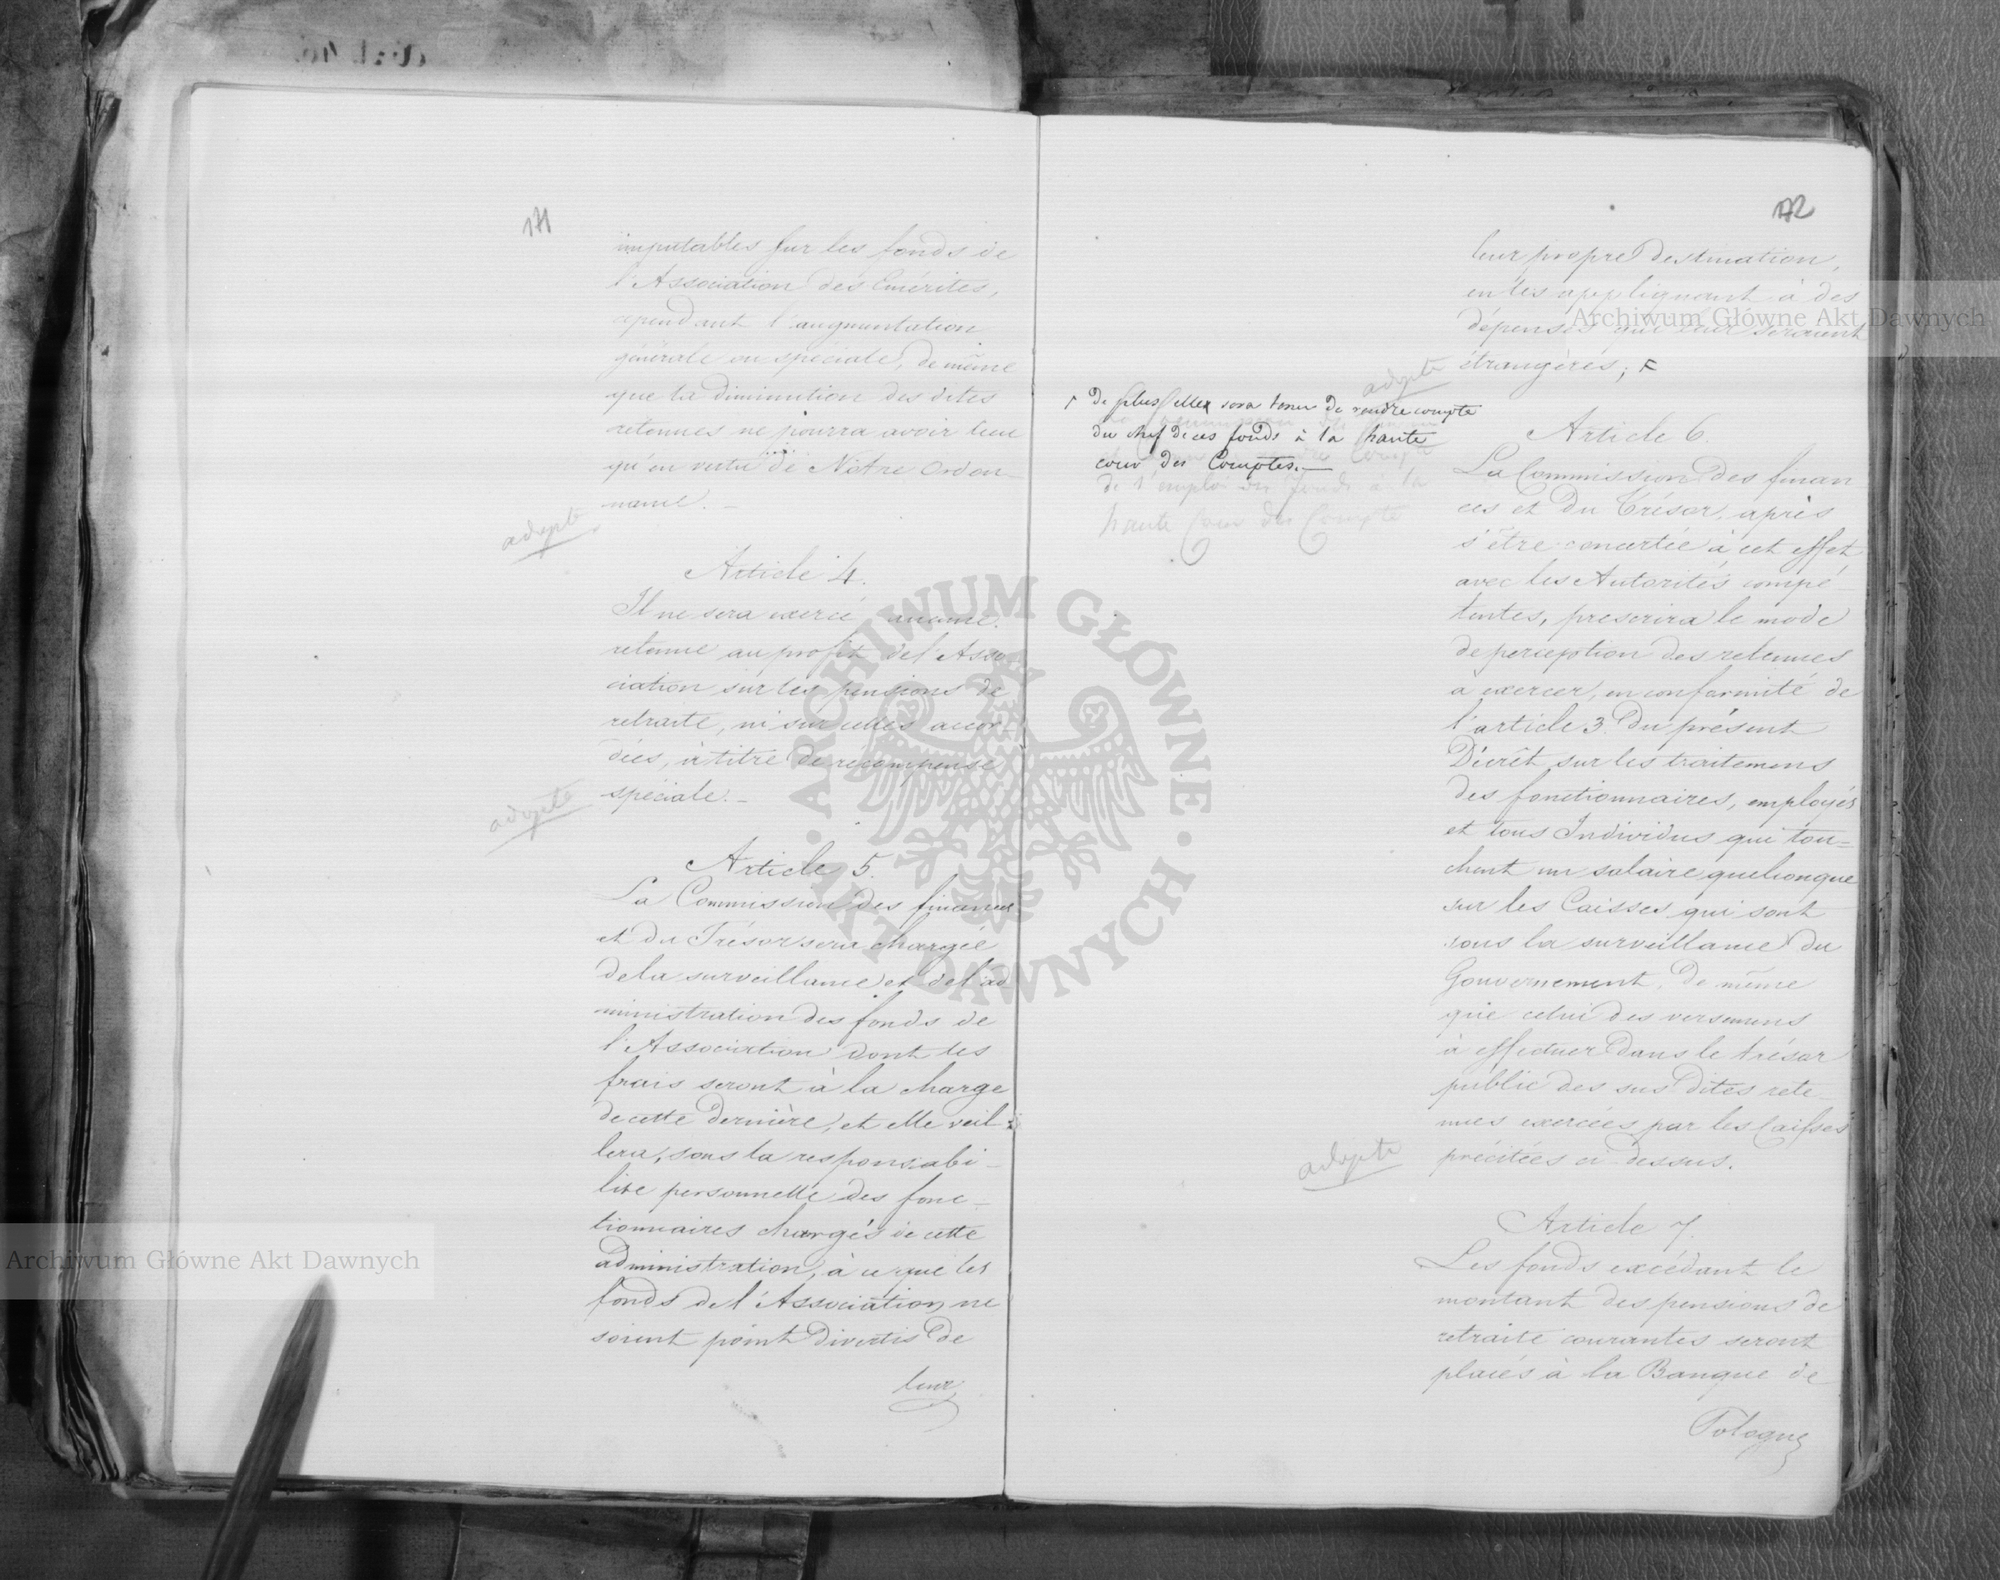 171
imputables sur les fonds de
l'Association des Emérites,
cependant l'augmentation
générale ou spéciale, de même
que la diminution des dites
retenues ne pourra avoir lieu
qu'en vertu de Notre Ordon-
nance. _
adopté
Article 4.
Il ne sera exercé aucune
retenue au profit de l'Asso-
ciation sur les pensions de
retraite, ni sur celles accor-
dées, à titre de récompense
spéciale. _
adopté
Article 5.
La Commission des finances
et du Trésor sera chargée
de la surveillance et de l'ad
ministration des fonds de
l'Association dont les
frais seront à la charge
de cette dernière, et elle veil-
lera, sous la responsabi-
lité personnelle des fonc-
tionnaires chargés de cette
administration, à ce que les
fonds de l'Association ne
soient point divertis de
leur
172
leur propre destination,
en les appliquant à des
dépenses qui leur seraient
étrangères;
adopté
De plus elle sera tenue de rendre compte
du chef de ces fonds à la haute
cour des Comptes._
de l'emploi des fonds à la
haute Cour des Compte
Article 6.
La Commission des finan-
ces et du Trésor, après
s'être concertée à cet effet
avec les Autorités compé-
tentes, prescrira le mode
de perception des retenues
à exercer, en conformité de
l'article 3 du présent
Décrèt sur les traitemens
des fonctionnaires, employés
et tous Individus qui tou=
chent un salaire quelconque
sur les Caisses qui sont
sous la surveillance du
Gouvernement, de même
que celui des versemens
à effectuer dans le trésor
public des sus dites rete-
nues exercées par les Caisses
précitées ci-dessus.
adopté
Article 7.
Les fonds excédant le
montant des pensions de
retraite courantes seront
placés à la Banque de
Pologne
Archiwum Główne Akt Dawnych
Archiwum Główne Akt Dawnych
ARCHIWUM GŁÓWNE · AKT DAWNYCH ·